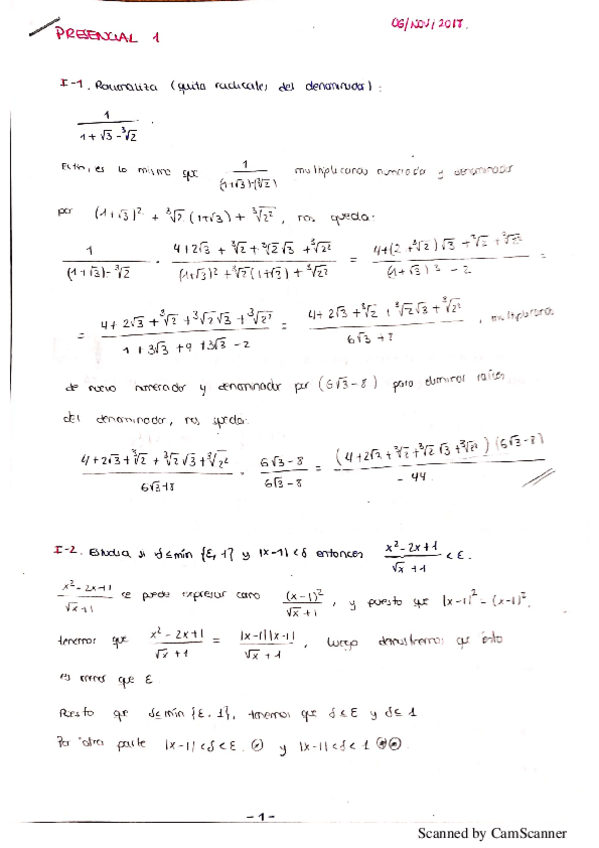 PRESENCIAL 1
06/NOV/2017.
I-1. Racionaliza (quita radicales del denominador):
1 / (1+√3-∛2) .
Esto, es lo mismo que 1 / ((1+√3)-(∛2)) multiplicamos numerador y denominador
por (1+√3)² + ∛2 (1+√3) + ∛2², nos queda:
1 / ((1+√3)-∛2) · (4+2√3 + ∛2 + ∛2√3 + ∛2²) / ((1+√3)² + ∛2(1+√3) + ∛2²) = (4+(2+∛2)√3 + ∛2 + ∛2²) / ((1+√3)³ - 2) =
= (4+2√3+∛2+∛2√3+∛2²) / (1+3√3+9+3√3-2) = (4+2√3+∛2+∛2√3+∛2²) / (6√3+8) , multiplicamos
de nuevo numerador y denominador por (6√3-8) para eliminar raíces
del denominador, nos queda:
(4+2√3+∛2+∛2√3+∛2²) / (6√3+8) · (6√3-8) / (6√3-8) = ((4+2√3+∛2+∛2√3+∛2²)(6√3-8)) / -44.
I-2. Estudia si δ≤mín {ε,1} y |x-1|<δ entonces (x²-2x+1) / (√x+1) < ε.
(x²-2x+1) / (√x+1) se puede expresar como (x-1)² / (√x+1) , y puesto que |x-1|² = (x-1)²,
tenemos que (x²-2x+1) / (√x+1) = |x-1||x-1| / (√x+1) , luego demostremos que esto
es menor que ε
Puesto que δ≤mín {ε.1}, tenemos que δ≤ε y δ≤1
Por otra parte |x-1|<δ<ε. y |x-1|<δ<1
-1-
Scanned by CamScanner